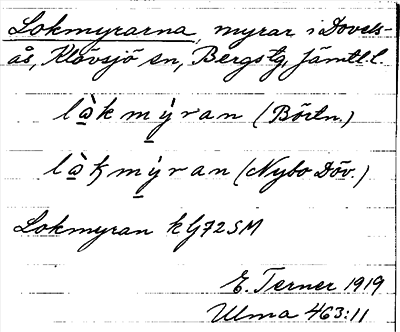 Lokmyrarna, myrar i Dovels-
ås, Klövsjö sn, Bergs tg, Jämtl. l.
là̠k m ý̠ r a n (Börtn.)
là̠k m ý̠ r a n (Nybo Döv.)
Lokmyran kG72SM
E. Terner 1919
Ulma 463:11